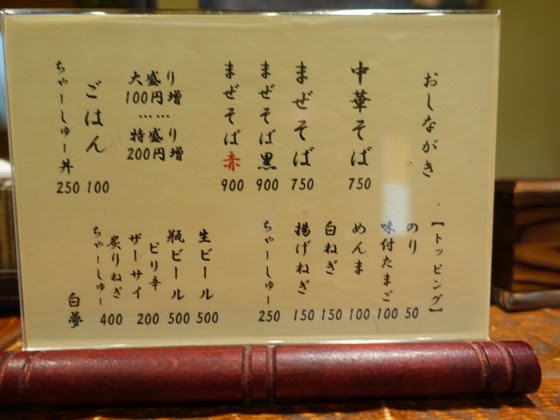 おしながき
中華そば 750
まぜそば 750
まぜそば黒 900
まぜそば赤 900
大盛り
100円増
……
特盛り
200円増
ごはん 100
ちゃーしゅー丼 250
【トッピング】
のり 50
味付たまご 100
めんま 100
白ねぎ 150
揚げねぎ 150
ちゃーしゅー 250
生ビール 500
瓶ビール 500
ピリ辛
ザーサイ 200
炙りねぎ
ちゃーしゅー 400
白夢